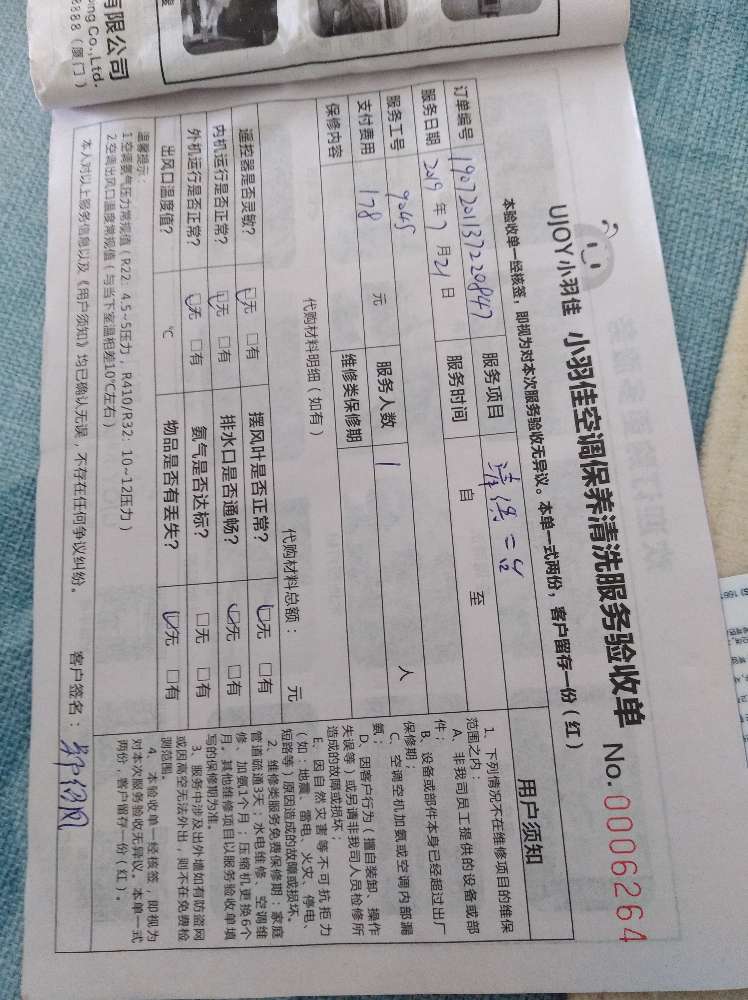 有限公司
ing Co.,Ltd.
8888（厦门）
UJOY小羽佳 小羽佳空调保养清洗服务验收单 No.0006264
本验收单一经核签，即视为对本次服务验收无异议。本单一式两份，客户留存一份(红)
订单编号 1907201137220847 服务项目 清洗二台
服务日期 2019年7月21日 服务时间 自 至
服务工号 9045 服务人数 1 人
支付费用 178 元 维修类保修期
保修内容
代购材料明细(如有) 代购材料总额: 元
遥控器是否灵敏? 无 有 摆风叶是否正常? 无 有
内机运行是否正常? 无 有 排水口是否通畅? 无 有
外机运行是否正常? 无 有 氨气是否达标? 无 有
出风口温度值? ℃ 物品是否有丢失? 无 有
温馨提示:
1.空调氨气压力常规值(R22: 4.5~5压力, R410/R32: 10~12压力)
2.空调出风口温度常规值(与当下室温相差10℃左右)
本人对以上服务信息以及《用户须知》均已确认无误，不存在任何争议纠纷。 客户签名:
用户须知
1、下列情况不在维修项目的维保
范围之内:
A、非我司员工提供的设备或部
件;
B、设备或部件本身已经超过出厂
保修期;
C、空调空机加氨或空调内部漏
氨;
D、因客户行为(擅自装卸、操作
失误等)或另请非我司人员检修所
造成的故障或损坏;
E、因自然灾害等不可抗拒力
(如:地震、雷电、火灾、停电、
短路等)原因造成的故障或损坏。
2、维修类服务免费保修期:家庭
管道疏通3天;水电维修、空调维
修、加氨1个月;压缩机更换6个
月。其他维修项目以服务验收单填
写的保修期为准。
3、服务中涉及出外墙如有防盗网
或因高空无法外出，则不在免费检
测范围。
4、本验收单一经核签，即视为
对本次服务验收无异议。本单一式
两份，客户留存一份(红)。